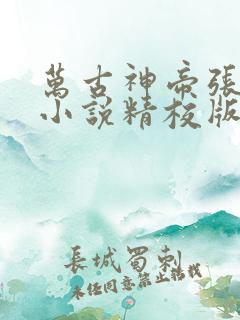 萬古神帝張
小說精校版
長城蜀刺
未经同意禁止转载